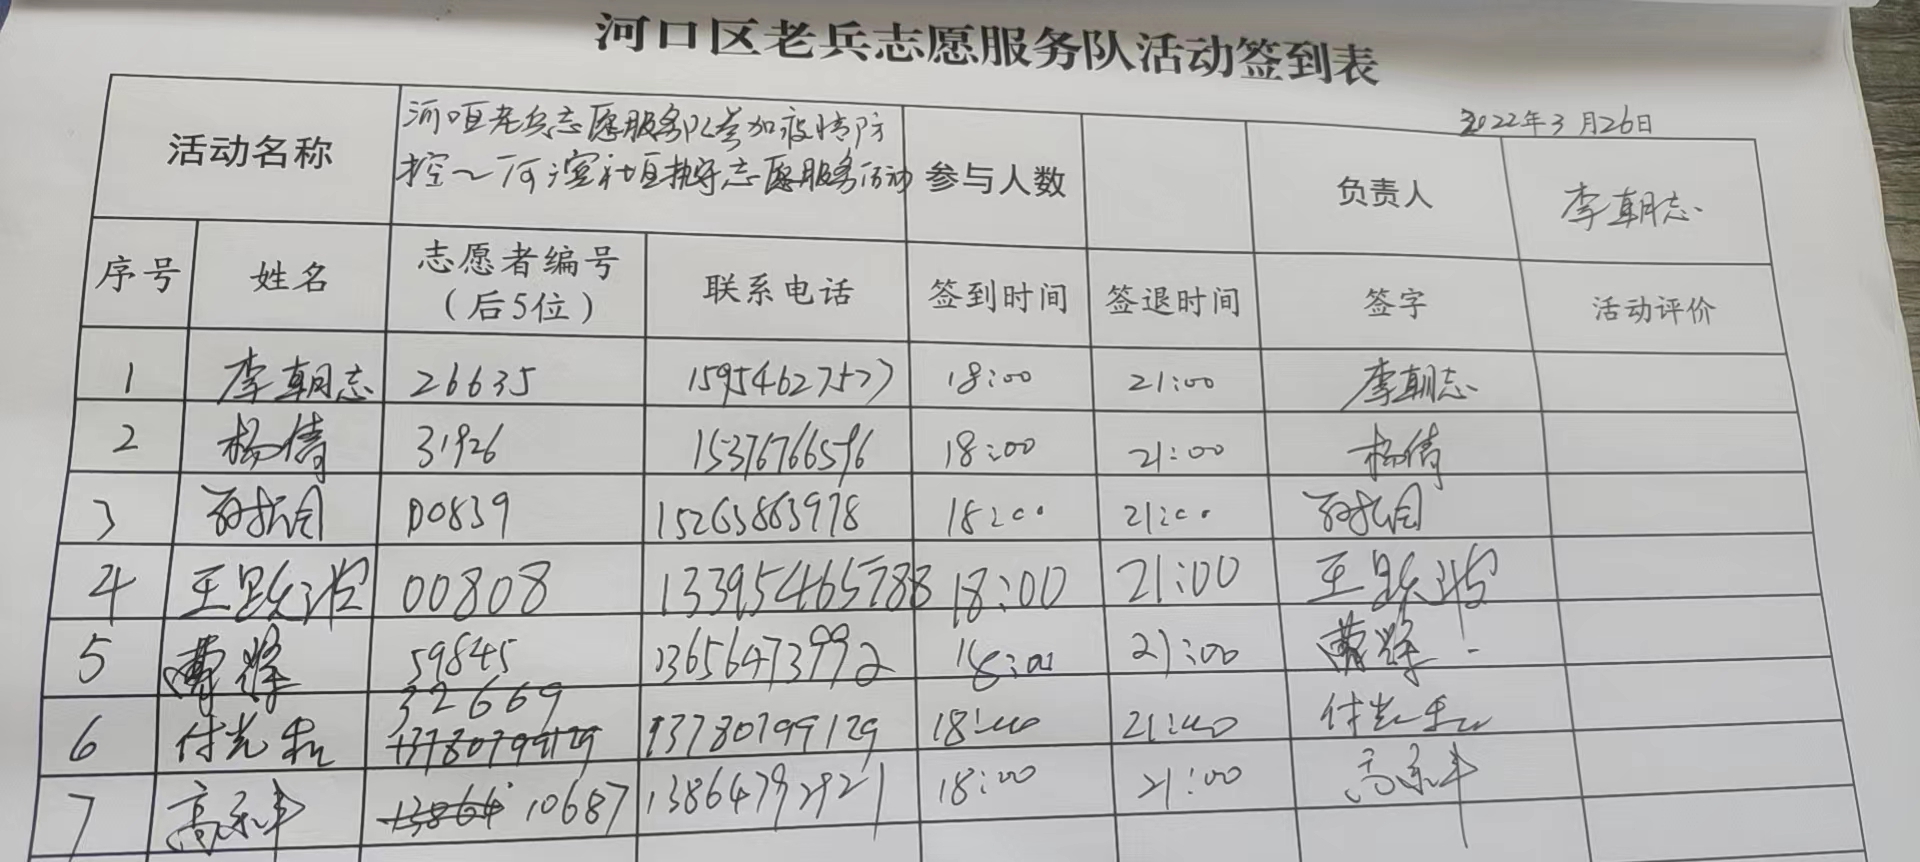 河口区老兵志愿服务队活动签到表
2022年3月26日
活动名称 河口区老兵志愿服务队参加疫情防 参与人数 负责人 李朝志
控~河滨社区执守志愿服务活动
序号 姓名 志愿者编号 联系电话 签到时间 签退时间 签字 活动评价
（后5位）
1 李朝志 26635 15954627577 18:00 21:00 李朝志
2 杨倩 31926 15376766596 18:00 21:00 杨倩
3 00839 15263863978 18:00 21:00
4 王跃波 00808 13395465788 18:00 21:00 王跃波
5 曹辉 59845 13656473992 18:00 21:00 曹辉
32669
6 付光 13780799129 13780799129 18:00 21:00 付光
7 高永丰 13864 10687 13864792921 18:00 21:00 高永丰